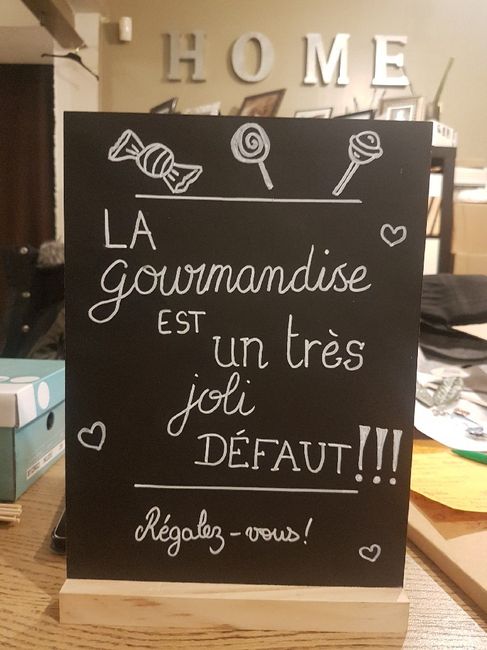 HOME
LA
gourmandise
EST
un très
joli
DÉFAUT!!!
Régalez-vous!